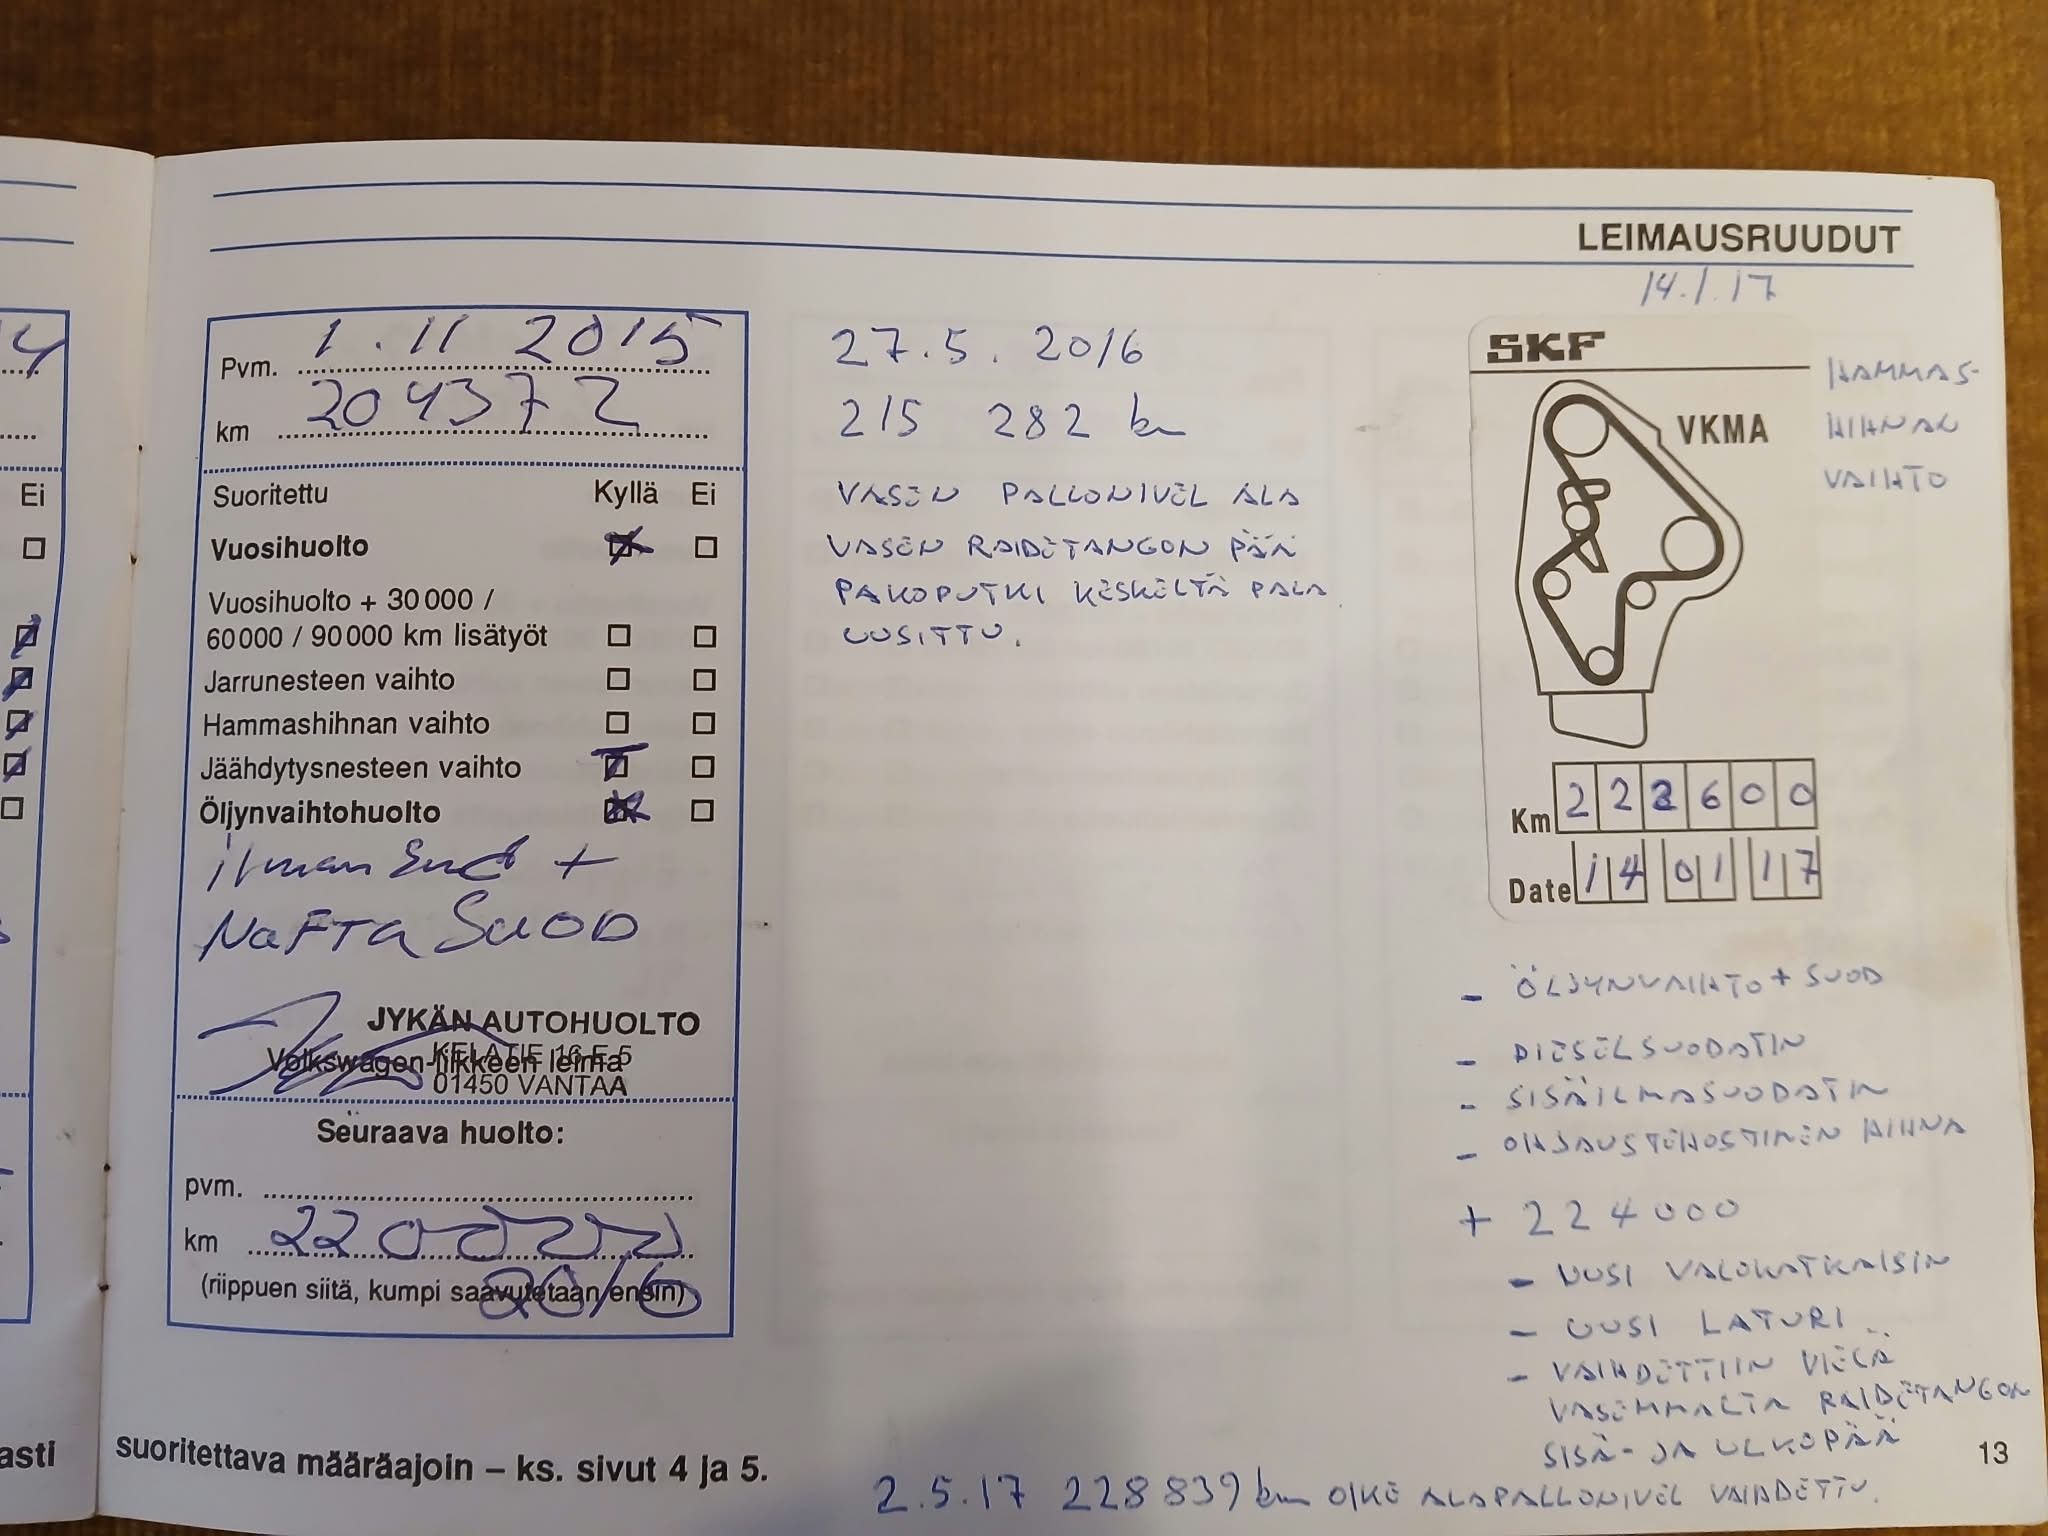 LEIMAUSRUUDUT
Ei
Pvm. 1.11 2015
km 204372
Suoritettu Kyllä Ei
Vuosihuolto
Vuosihuolto + 30 000 /
60 000 / 90 000 km lisätyöt
Jarrunesteen vaihto
Hammashihnan vaihto
Jäähdytysnesteen vaihto
Öljynvaihtohuolto
ilman suod +
NaFTa SUOD
JYKÄN AUTOHUOLTO
KELATIE 16 E 5
Volkswagen-liikkeen leima
01450 VANTAA
Seuraava huolto:
pvm.
km 220000
(riippuen siitä, kumpi saavutetaan ensin)
2016
asti
suoritettava määräajoin – ks. sivut 4 ja 5.
27.5. 2016
215 282 km
VASEN PALLONIVEL ALA
VASEN RAIDETANGON PÄÄ
PAKOPUTKI KESKELTÄ PALA
UUSITTU.
14.1.17
SKF
VKMA
HAMMAS-
HIHNAN
VAIHTO
Km 222600
Date 14 01 17
- ÖLJYNVAIHTO + SUOD
- DIESELSUODATIN
- SISÄILMASUODATIN
- OHJAUSTEHOSTIMEN HIHNA
+ 224000
- UUSI VALOKATKAISIN
- UUSI LATURI
- VAIHDETTIIN VIELÄ
VASEMMALTA RAIDETANGON
SISÄ- JA ULKOPÄÄ
13
2.5.17 228839 km OIKE ALAPALLONIVEL VAIHDETTU.